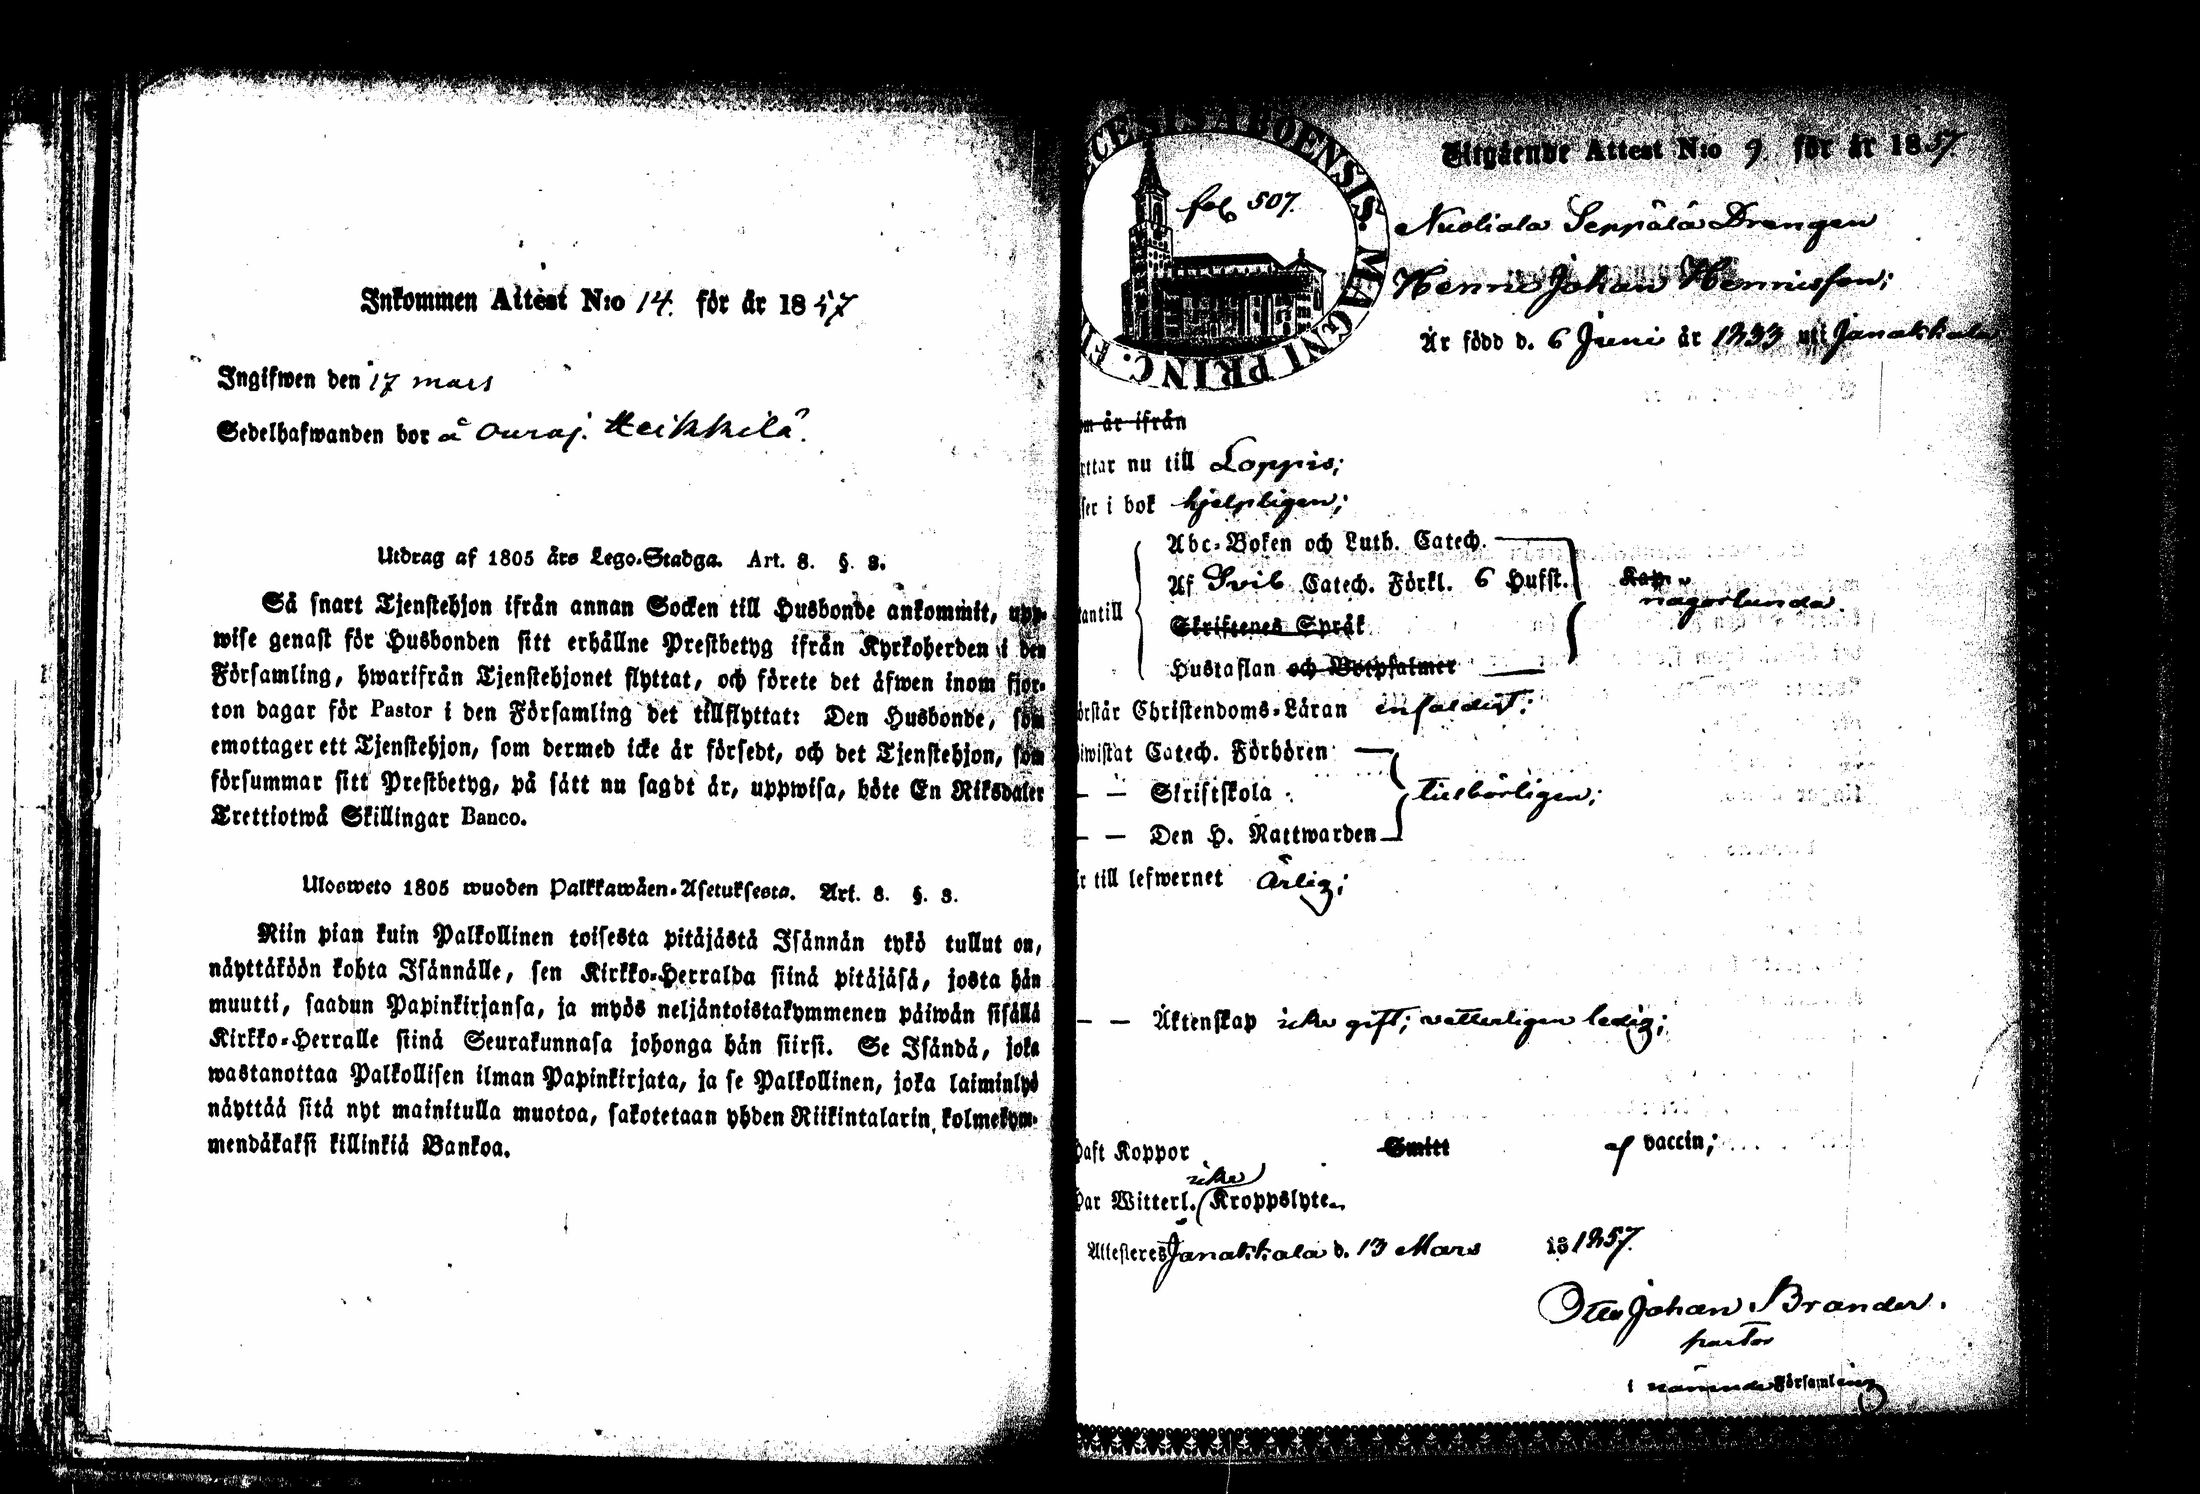 Inkommen Attest N:o 14. för år 1857
Ingifwen den 17 mars
Sedelhafwanden bor å Ouraj. Heikkilä.
Utdrag af 1805 års Lego-Stadga. Art. 8. §. 3.
Så snart Tjenstehjon ifrån annan Socken till Husbonde ankommit, upp-
wise genast för Husbonden sitt erhållne Prestbetyg ifrån Kyrkoherden i den
Församling, hwarifrån Tjenstehjonet flyttat, och förete det äfwen inom fjor-
ton dagar för Pastor i den Församling det tillflyttat: Den Husbonde, som
emottager ett Tjenstehjon, som dermed icke är försedt, och det Tjenstehjon, som
försummar sitt Prestbetyg, på sätt nu sagdt är, uppwisa, böte En Riksdaler
Trettiotwå Skillingar Banco.
Ulosweto 1805 wuoden Palkkawäen-Asetuksesta. Art. 8. §. 3.
Niin pian kuin Palkollinen toisesta pitäjästä Isännän tykö tullut on,
näyttäköön kohta Isännälle, sen Kirkko-Herralda siinä pitäjäsä, josta hän
muutti, saadun Papinkirjansa, ja myös neljäntoistakymmenen päiwän sisällä
Kirkko-Herralle siinä Seurakunnasa johonga hän siirsi. Se Isändä, joka
wastanottaa Palkollisen ilman Papinkirjata, ja se Palkollinen, joka laiminlyö
näyttää sitä nyt mainitulla muotoa, sakotetaan yhden Riikintalarin kolmekym-
mendäkaksi killinkiä Bankoa.
CESIS ABOENSIS. MAGNI PRINC. FI
fol 507.
Utgående Attest N:o 9. för år 1857.
Nuoliala Seppälä Drengen
Henric Johan Henricsson;
Är född d. 6 Juni år 1833 uti Janakkala
m är ifrån
ttar nu till Loppis;
ser i bok hjelpligen;
Abc-Boken och Luth. Catech.
Af Svib Catech. Förkl. 6 Hufst.
någorlunda.
tantill
Skriftenes Språk
Hustaflan och Botpsalmer
örstår Christendoms-Läran enfaldigt;
iwistat Catech. Förhören
— — Skriftskola
tillbörligen;
— — Den H. Nattwarden
r till lefwernet Ärlig;
— — Äktenskap icke gift; vetterligen ledig;
haft Koppor Smitt af vaccin;
icke
har Witterl. Kroppslyte.
Attesteres Janakkala d. 13 Mars 18 1857.
Otto Johan Brander.
pastor
i nämnde Församling